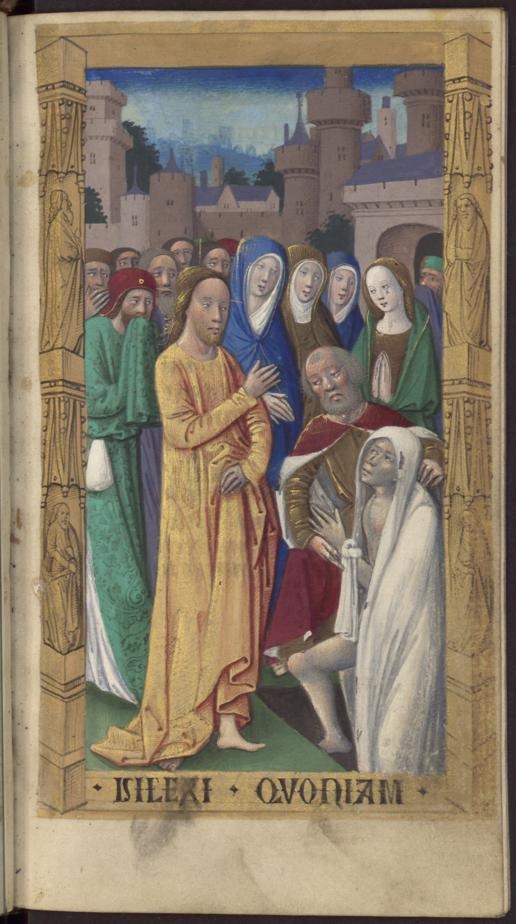 · DILEXI · QVONIAM ·